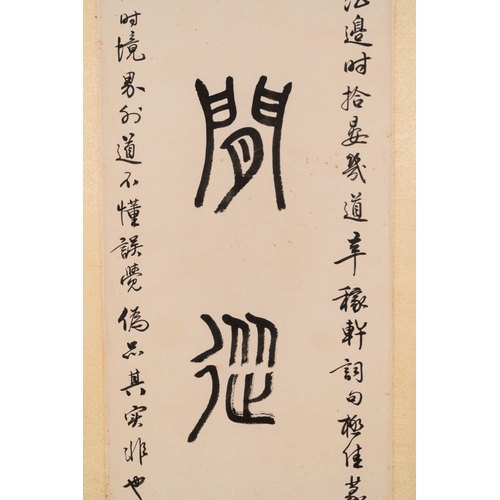 邊时拾晏幾道辛稼軒詞句極佳
閒從
时境界外道不懂誤覺偽品其实非也